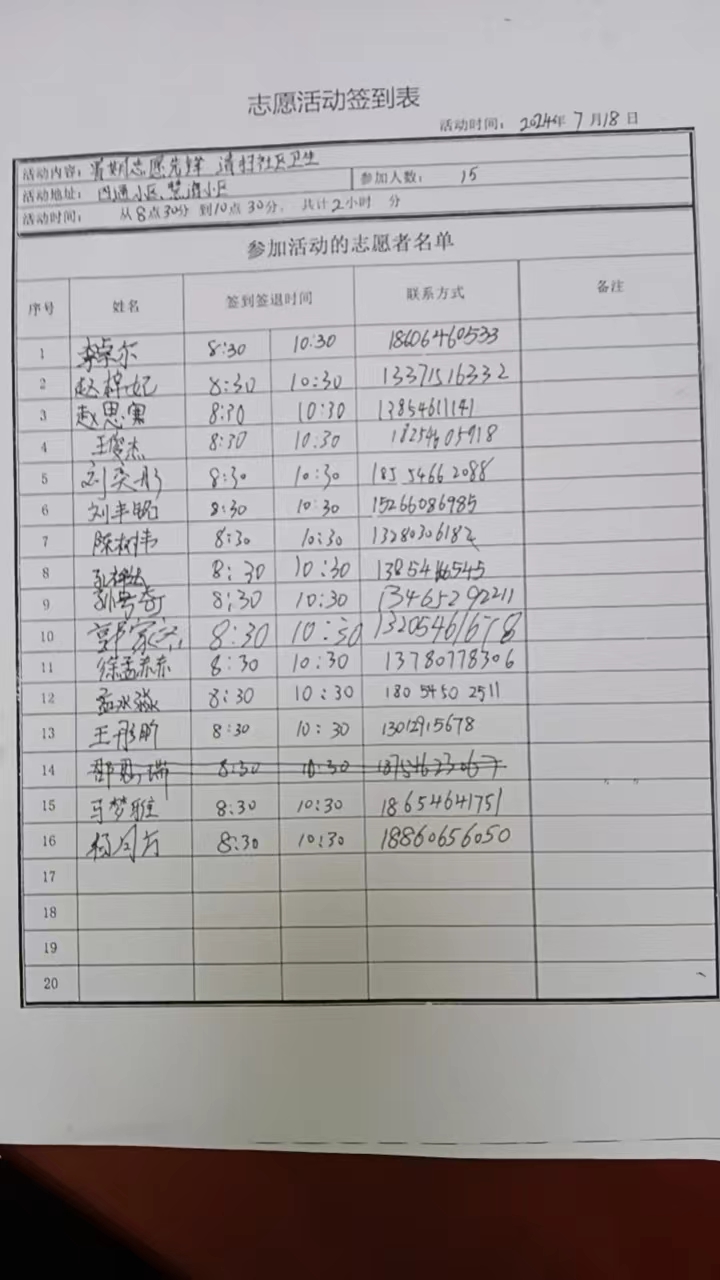 志愿活动签到表
活动时间: 2024年 7月18日
活动内容: 暑期志愿先锋 清扫社区卫生
活动地址: 四通小区、慧谱小区 参加人数: 15
活动时间: 从8点30分 到10点30分, 共计2小时 分
参加活动的志愿者名单
序号 姓名 签到签退时间 联系方式 备注
1 李卓尔 8:30 10:30 18606460533
2 赵梓妃 8:30 10:30 13371516332
3 赵思寓 8:30 10:30 13854611141
4 王俊杰 8:30 10:30 18254605918
5 刘奕彤 8:30 10:30 18554662088
6 刘丰铭 8:30 10:30 15266086985
7 陈树伟 8:30 10:30 13280306182
8 8:30 10:30
9 8:30 10:30 13465292211
10 郭家 8:30 10:30 13205461678
11 徐孟赤赤 8:30 10:30 13780778306
12 孟水淼 8:30 10:30 180 5450 2511
13 王彤昕 8:30 10:30 13012915678
14 邵 瑞 8:30 10:30 18754623067
15 马梦雅 8:30 10:30 18654641751
16 杨 方 8:30 10:30 18860656050
17
18
19
20